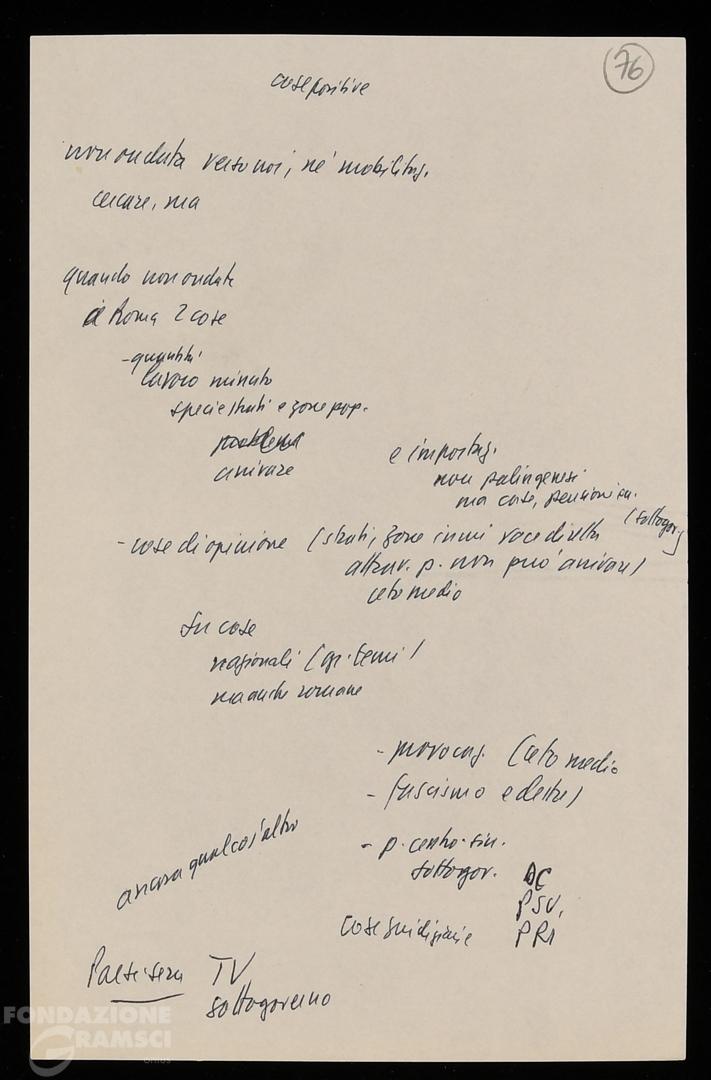 76
cose positive
non ondata verso noi, né mobilitaz.
cercare, ma
quando non ondata
a Roma 2 cose
- quantità
lavoro minuto
specie strati e zone pop.
problemi
arrivare
e importaz.
non palingenesi
ma cose, pensioni
(sottogov.)
- cose di opinione (strati, zone in cui voce diretta
attrav. p. non può arrivare)
ceto medio
su cose
nazionali (gr. temi)
ma anche romane
- provocaz. (ceto medio
- fascismo e destra)
- p. centro-sin.
sottogov. DC
PSU,
PRI
cose
ancora qualcos'altro
Paese sera TV
sottogoverno
FONDAZIONE
GRAMSCI
onlus